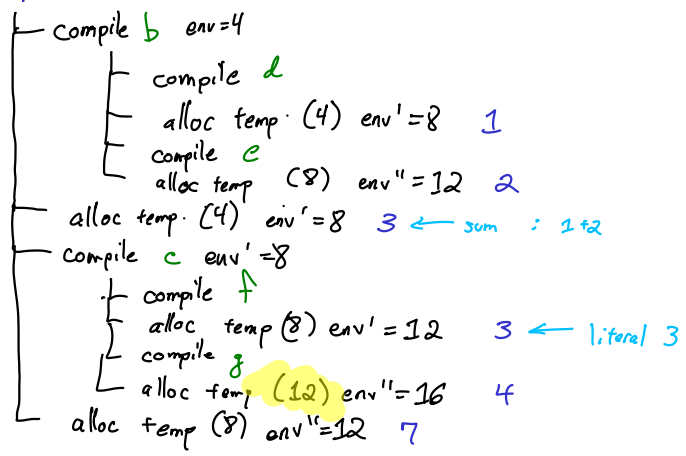 compile b env=4
compile d
alloc temp. (4) env'=8 1
compile e
alloc temp (8) env"=12 2
alloc temp. (4) env'=8 3 ← sum : 1+2
compile c env'=8
compile f
alloc temp (8) env'=12 3 ← literal 3
compile g
alloc temp (12) env"=16 4
alloc temp (8) env"=12 7